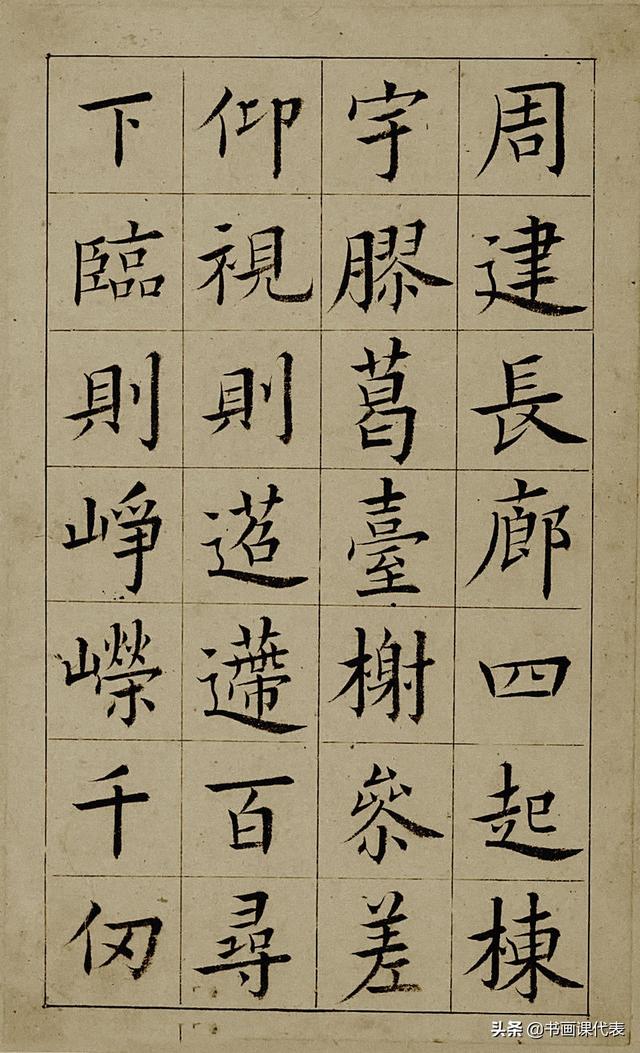 周建長廊四起棟
宇膠葛臺榭參差
仰視則迢遰百尋
下臨則崢嶸千仞
头条 @书画课代表